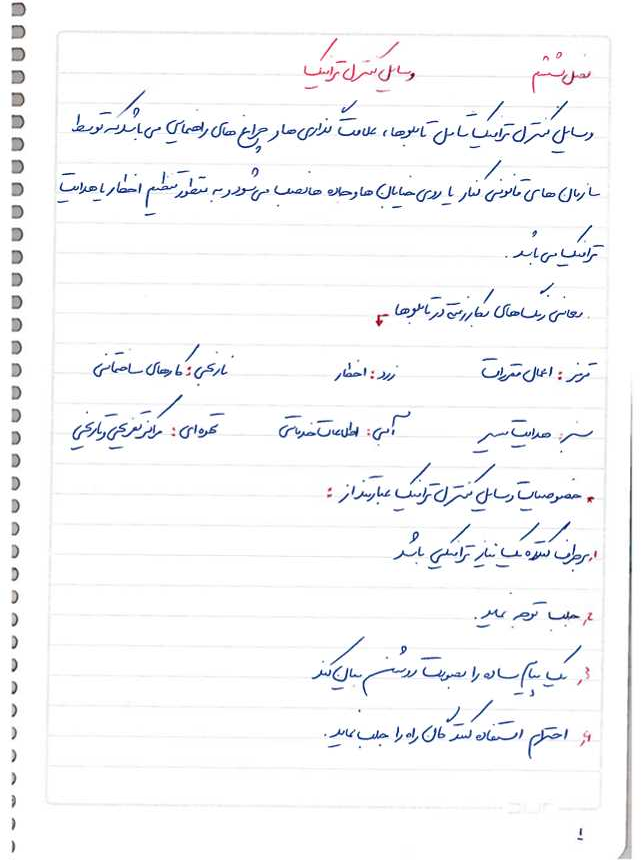 فصل ششم وسایل کنترل ترافیک
وسایل کنترل ترافیک شامل تابلوها، علامت گذاری ها و چراغ های راهنمایی می باشد که توسط
سازمان های قانونی کنار یا روی خیابان ها و جاده ها نصب می شود و به منظور تنظیم اخطار یا هدایت
ترافیک می باشد.
معانی رنگ های بکار رفته در تابلوها
قرمز: اعمال مقررات زرد: اخطار نارنجی: کارهای ساختمانی
سبز: هدایت مسیر آبی: اطلاعات خدماتی قهوه ای: مراکز تفریحی و تاریخی
* خصوصیات وسایل کنترل ترافیک عبارتند از:
۱. برطرف کننده یک نیاز ترافیکی باشد
۲. جلب توجه نماید.
۳. یک پیام ساده را بصورت روشن بیان کند
۴. احترام استفاده کنندگان راه را جلب نماید.
۱